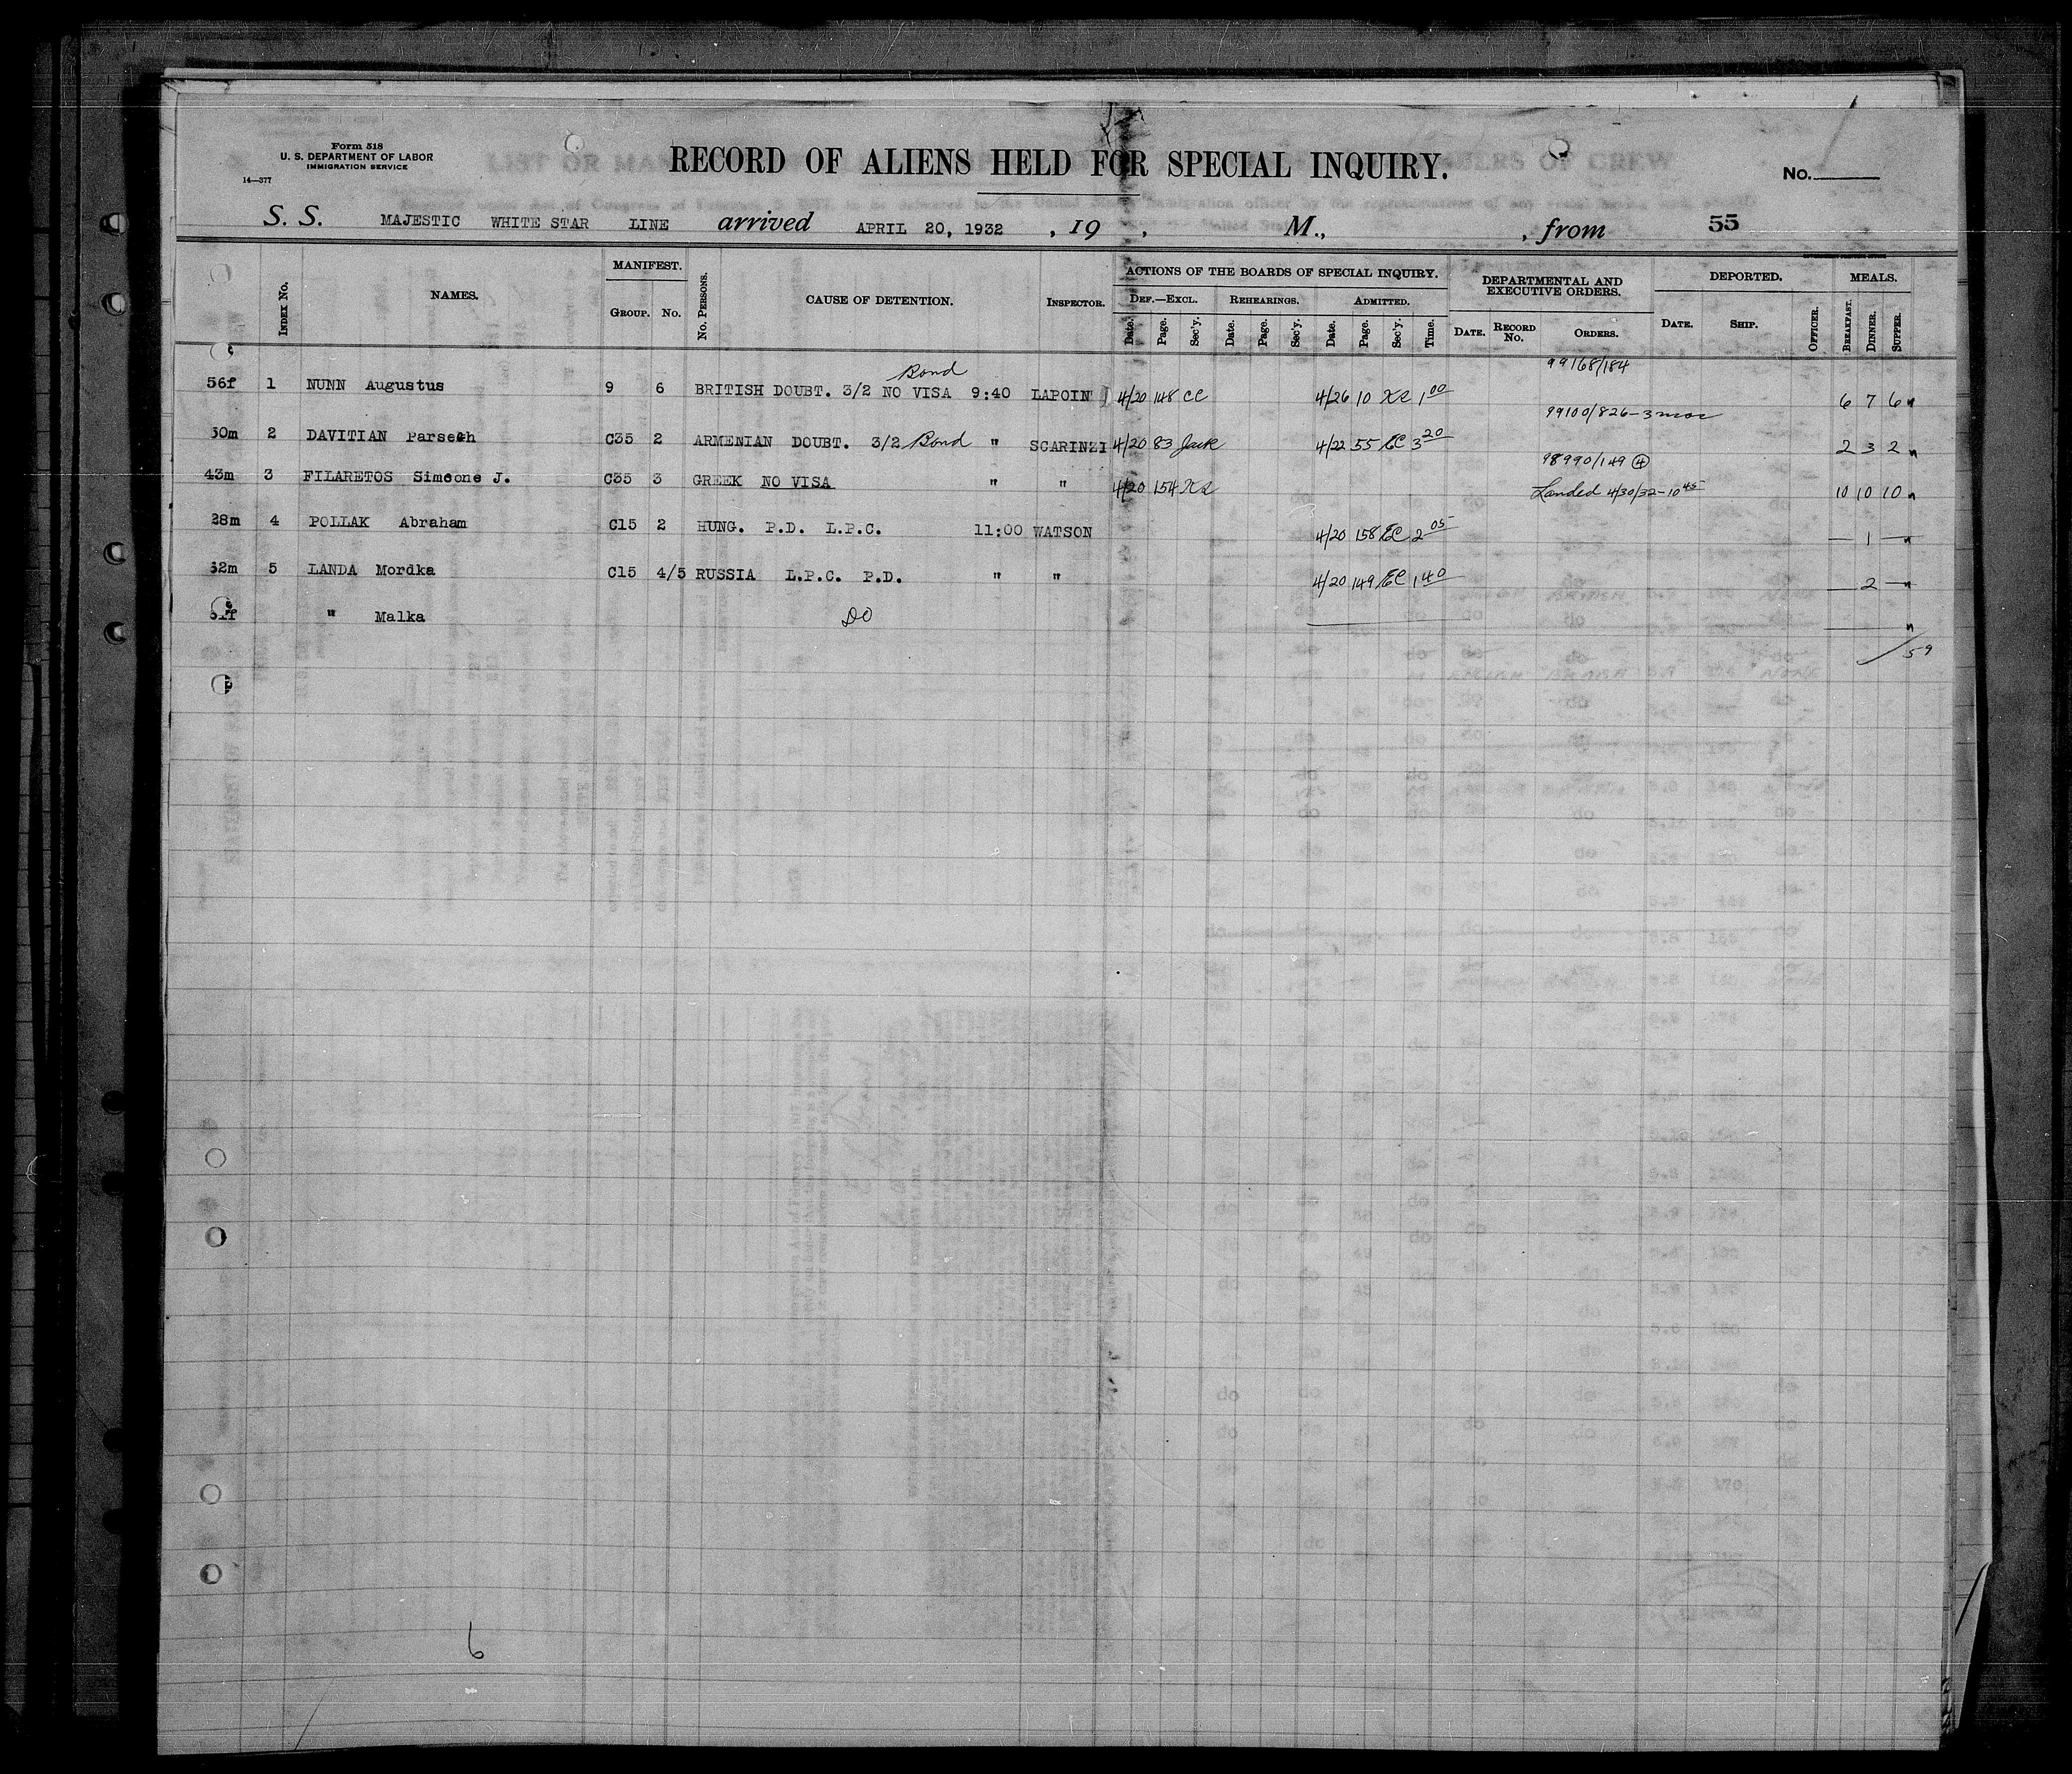 Form 518
U. S. DEPARTMENT OF LABOR
IMMIGRATION SERVICE
14—377
RECORD OF ALIENS HELD FOR SPECIAL INQUIRY.
No. 1
S. S. MAJESTIC WHITE STAR LINE arrived APRIL 20, 1932, 19 , M., , from 55
INDEX No. NAMES. MANIFEST. GROUP. No. No. PERSONS. CAUSE OF DETENTION. INSPECTOR. ACTIONS OF THE BOARDS OF SPECIAL INQUIRY. DEF.—EXCL. Date. Page. Sec'y. REHEARINGS. Date. Page. Sec'y. ADMITTED. Date. Page. Sec'y. Time. DEPARTMENTAL AND EXECUTIVE ORDERS. DATE. RECORD No. ORDERS. DEPORTED. DATE. SHIP. OFFICER. MEALS. BREAKFAST. DINNER. SUPPER.
Bond 99168/184
56f 1 NUNN Augustus 9 6 BRITISH DOUBT. 3/2 NO VISA 9:40 LAPOIN 4/20 148 CC 4/26 10 1 00 6 7 6 "
99100/826-3 mos
30m 2 DAVITIAN Parsegh C35 2 ARMENIAN DOUBT. 3/2 Bond " SCARINZI 4/20 83 Jack 4/22 55 EC 3 20 2 3 2 "
98990/149 4
43m 3 FILARETOS Simeone J. C35 3 GREEK NO VISA " " 4/20 154 Landed 4/30/32-10 45 10 10 10 "
28m 4 POLLAK Abraham C15 2 HUNG. P.D. L.P.C. 11:00 WATSON 4/20 158 EC 2 05 — 1 — "
32m 5 LANDA Mordka C15 4/5 RUSSIA L.P.C. P.D. " " 4/20 149 EC 1 40 — 2 — "
" Malka DO "
59
6